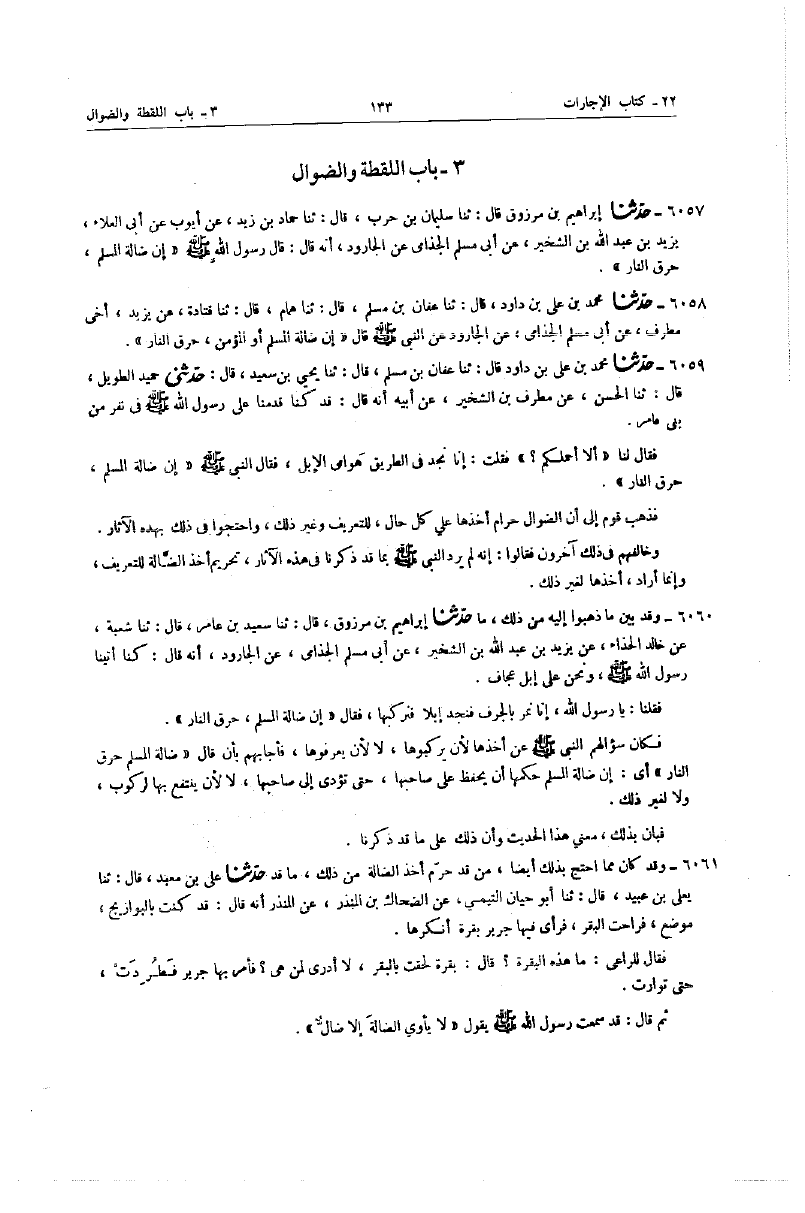 ٢٢ - كتاب الإجارات ١٣٣ ٣ - باب اللقطة والضوال
٣ - باب اللقطة والضوال
٦٠٥٧ - حدثنا إبراهيم بن مرزوق قال : ثنا سليمان بن حرب ، قال : ثنا حماد بن زيد ، عن أيوب عن أبى العلاء ،
يزيد بن عبد الله بن الشخير ، عن أبى مسلم الجذامى عن الجارود ، أنه قال : قال رسول الله ﷺ « إن ضالة المسلم ،
حرق النار » .
٦٠٥٨ - حدثنا محمد بن على بن داود ، قال : ثنا عفان بن مسلم ، قال : ثنا همام ، قال : ثنا قتادة ، عن يزيد ، أخى
مطرف ، عن أبى مسلم الجذامى ، عن الجارود عن النبى ﷺ قال « إن ضالة المسلم أو المؤمن ، حرق النار » .
٦٠٥٩ - حدثنا محمد بن على بن داود قال : ثنا عفان بن مسلم ، قال : ثنا يحيى بن سعيد ، قال : حدثنى حميد الطويل ،
قال : ثنا الحسن ، عن مطرف بن الشخير ، عن أبيه أنه قال : قد كنا قدمنا على رسول الله ﷺ فى نفر من
بنى عامر .
فقال لنا « ألا أحملكم ؟ » فقلت : إنا نجد فى الطريق هوامى الإبل ، فقال النبى ﷺ « إن ضالة المسلم ،
حرق النار » .
فذهب قوم إلى أن الضوال حرام أخذها علي كل حال ، للتعريف وغير ذلك ، واحتجوا فى ذلك بهذه الآثار .
وخالفهم فى ذلك آخرون فقالوا : إنه لم يرد النبى ﷺ بما قد ذكرنا فى هذه الآثار ، تحريم أخذ الضّالة للتعريف ،
وإنما أراد ، أخذها لغير ذلك .
٦٠٦٠ - وقد بين ما ذهبوا إليه من ذلك ، ما حدثنا إبراهيم بن مرزوق ، قال : ثنا سعيد بن عامر ، قال : ثنا شعبة ،
عن خالد الحذاء ، عن يزيد بن عبد الله بن الشخير ، عن أبى مسلم الجذامى ، عن الجارود ، أنه قال : كنا أتينا
رسول الله ﷺ ، ونحن على إبل عجاف .
فقلنا : يا رسول الله ، إنا نمر بالجرف فنجد إبلا فنركبها ، فقال « إن ضالة المسلم ، حرق النار » .
فكان سؤالهم النبى ﷺ عن أخذها لأن يركبوها ، لا لأن يعرفوها ، فأجابهم بأن قال « ضالة المسلم حرق
النار » أى : إن ضالة المسلم حكمها أن يحفظ على صاحبها ، حتى تؤدى إلى صاحبها ، لا لأن ينتفع بها لركوب ،
ولا لغير ذلك .
فبان بذلك ، معني هذا الحديث وأن ذلك على ما قد ذكرنا .
٦٠٦١ - وقد كان مما احتج بذلك أيضا ، من قد حرّم أخذ الضالة من ذلك ، ما قد حدثنا على بن معبد ، قال : ثنا
يعلى بن عبيد ، قال : ثنا أبو حيان التيمي ، عن الضحاك بن المنذر ، عن المنذر أنه قال : قد كنت بالبوازيج ،
موضع ، فراحت البقر ، فرأى فيها جرير بقرة أنكرها .
فقال للراعى : ما هذه البقرة ؟ قال : بقرة لحقت بالبقر ، لا أدرى لمن هى ؟ فأمر بها جرير فَطُرِدَتْ ،
حتى توارت .
ثم قال : قد سمعت رسول الله ﷺ يقول « لا يأوي الضالةَ إلا ضالٌّ » .